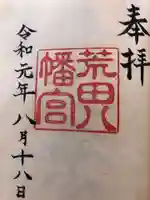 奉拝
荒田八幡宮
令和元年八月十八日